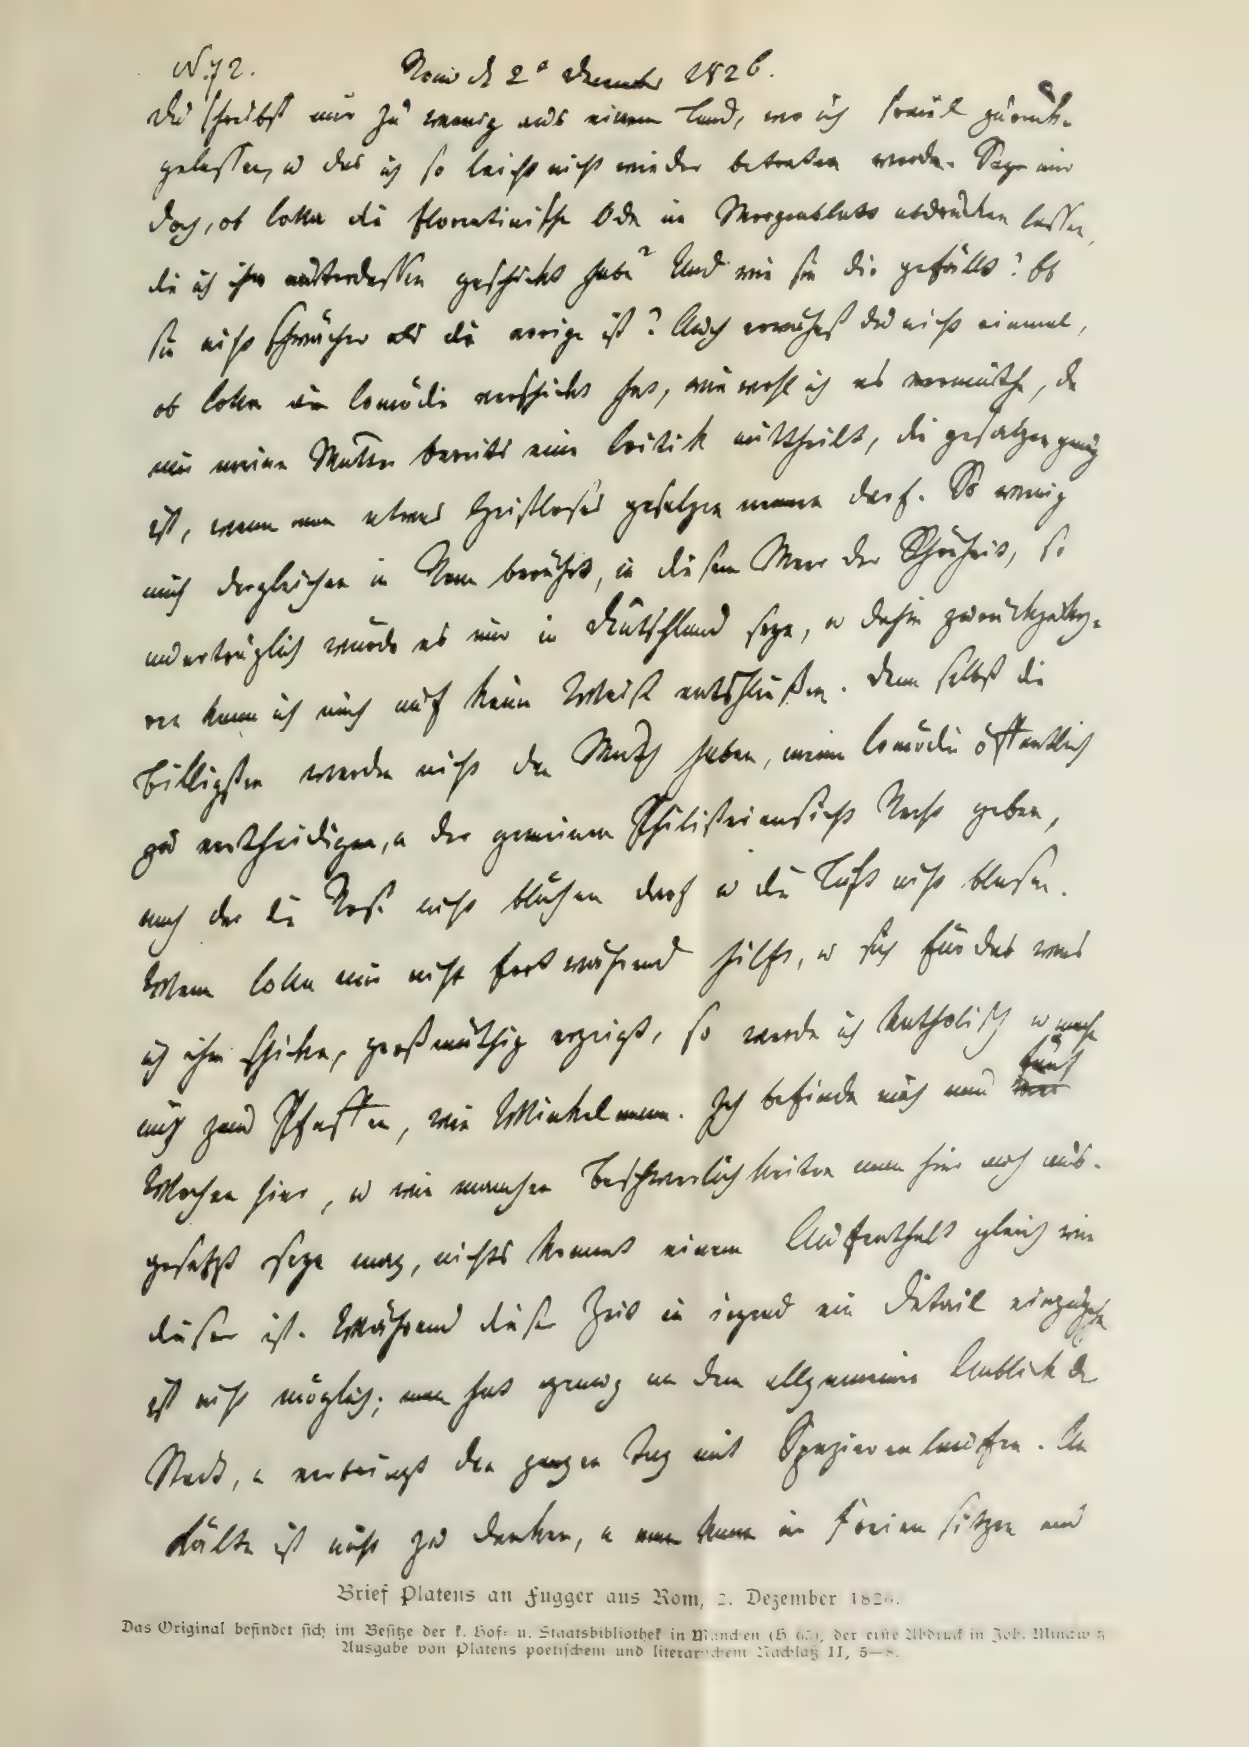 N. 72. Rom d 2t December 1826.
Du schreibst mir zu wenig aus einem Land, wo ich Freunde zurück-
gelassen, u das ich so leicht nicht wieder betreten werde. Sage mir
doch, ob Cotta die florentinische Ode im Morgenblatt abdrucken lassen,
die ich ihm unterdessen geschickt habe? Und wie sie dir gefällt? Ob
sie nicht schwächer als die vorige ist? Auch erwähnst du nicht einmal,
ob Cotta die Comödie verschickt hat, wiewohl ich es vermuthe, da
mir meine Mutter bereits eine Critik mittheilt, die gesalzen genug
ist, wenn man etwas Geistloses gesalzen nennen darf. So wenig
mich dergleichen in Rom berührt, in diesem Meer der Schönheit, so
unerträglich würde es mir in Deutschland seyn, u dahin zurückzukeh-
ren kann ich mich auf keine Weise entschließen. Denn selbst die
Billigsten werden nicht den Muth haben, meine Comödie öffentlich
zu vertheidigen, u der gemeinen Philisteransicht Recht geben,
nach der die Rose nicht blühen darf u die Luft nicht blasen.
Wenn Cotta mir nicht fortwährend hilft, u sich für das was
ich ihm schicke, großmüthig erzeigt, so werde ich katholisch u mache
mich zum Pfaffen, wie Winkelmann. Ich befinde mich nun fünf
Wochen hier, u wie manchen Beschwerlichkeiten man hier auch aus-
gesetzt seyn mag, nichts kommt einem Aufenthalt gleich wie
dieser ist. Während dieser Zeit in irgend ein Detail einzugehn
ist nicht möglich; man hat genug an dem allgemeinen Anblick der
Stadt, u verbringt den ganzen Tag mit Spazierenlaufen. An
Kälte ist nicht zu denken, u man kann im Freien sitzen und
Brief Platens an Fugger aus Rom, 2. Dezember 1826.
Das Original befindet sich im Besitze der k. Hof- u. Staatsbibliothek in München, der erste Abdruck in Joh. Minckwitz
Ausgabe von Platens poetischem und literarischem Nachlaß II, 5—8.